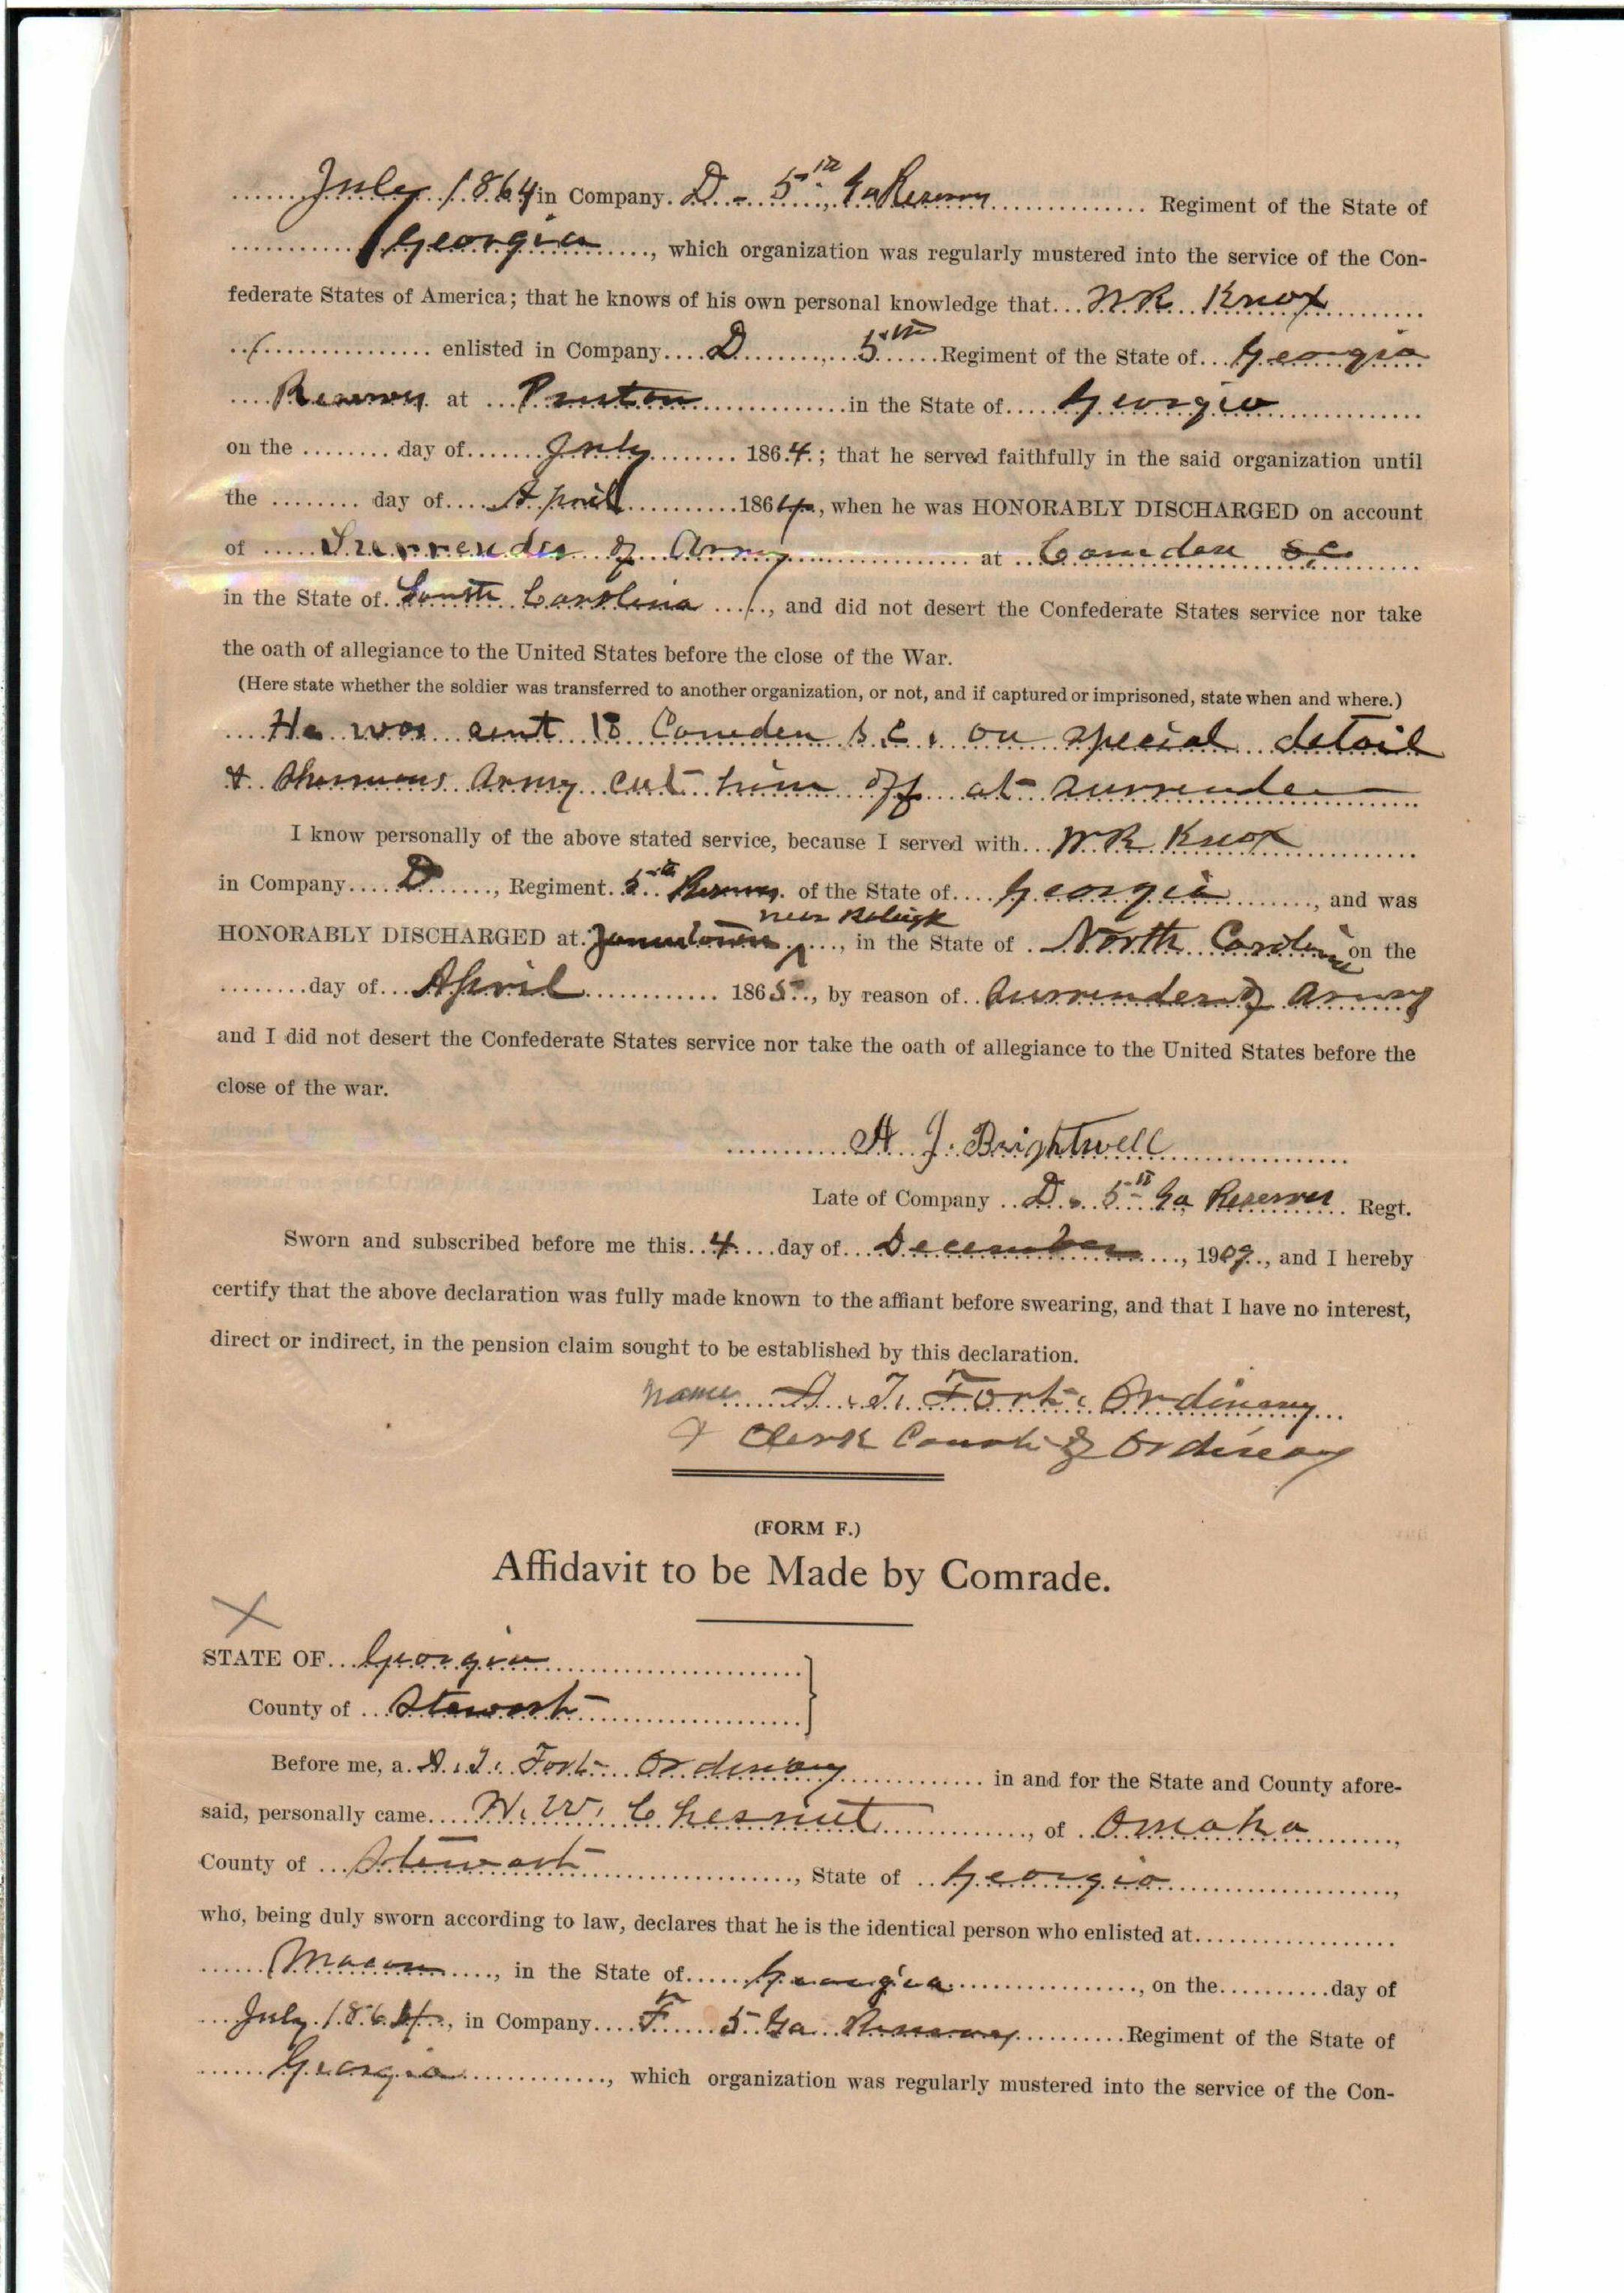 July 1864 in Company D - 5th Ga Reserves Regiment of the State of
Georgia, which organization was regularly mustered into the service of the Con-
federate States of America; that he knows of his own personal knowledge that W R Knox
enlisted in Company D, 5th Regiment of the State of Georgia
Reserves at Preston in the State of Georgia
on the day of July 1864; that he served faithfully in the said organization until
the day of April 186, when he was HONORABLY DISCHARGED on account
of Surrender of Army at Camden SC
in the State of South Carolina, and did not desert the Confederate States service nor take
the oath of allegiance to the United States before the close of the War.
(Here state whether the soldier was transferred to another organization, or not, and if captured or imprisoned, state when and where.)
He was sent to Camden S.C. on special detail
& Shermans Army cut him off at surrender
I know personally of the above stated service, because I served with W R Knox
in Company D, Regiment 5th Reserves of the State of Georgia, and was
near Raleigh
HONORABLY DISCHARGED at Jamestown, in the State of North Carolina on the
day of April 1865, by reason of surrender of Army
and I did not desert the Confederate States service nor take the oath of allegiance to the United States before the
close of the war.
A J. Brightwell
Late of Company D - 5th Ga Reserves Regt.
Sworn and subscribed before me this 4 day of December, 1909, and I hereby
certify that the above declaration was fully made known to the affiant before swearing, and that I have no interest,
direct or indirect, in the pension claim sought to be established by this declaration.
Name A. T. Fort. Ordinary
& Clerk Court of Ordinary
(FORM F.)
Affidavit to be Made by Comrade.
X
STATE OF Georgia
County of Stewart
Before me, a A. T. Fort Ordinary in and for the State and County afore-
said, personally came W. W. Chesnut, of Omaha,
County of Stewart, State of Georgia,
who, being duly sworn according to law, declares that he is the identical person who enlisted at
Macon, in the State of Georgia, on the day of
July 1864, in Company F 5 Ga Reserves Regiment of the State of
Georgia, which organization was regularly mustered into the service of the Con-